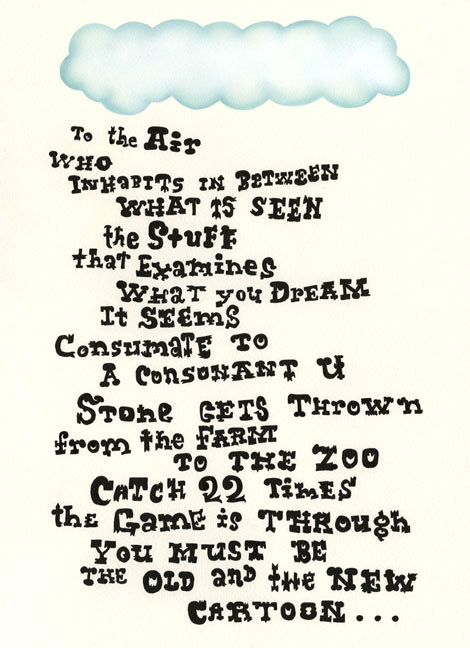 To the Air
WHO
INHABITS IN BETWEEN
WHAT IS SEEN
the Stuff
that Examines
WHAT you DREAM
It SEEMS
Consumate TO
A CONSONANT U
Stone GETS Thrown
from the FARM
TO THE ZOO
CATCH 22 Times
the Game is THROUGH
You MUST BE
THE OLD and the NEW
CARTOON...